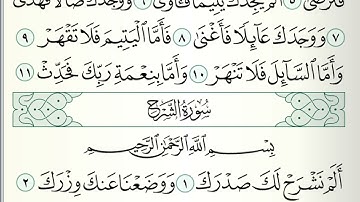 فَتَرْضَىٰٓ ٥ أَلَمْ يَجِدْكَ يَتِيمًا فَـَٔاوَىٰ ٦ وَوَجَدَكَ ضَآلًّا فَهَدَىٰ
٧ وَوَجَدَكَ عَآئِلًا فَأَغْنَىٰ ٨ فَأَمَّا ٱلْيَتِيمَ فَلَا تَقْهَرْ ٩
وَأَمَّا ٱلسَّآئِلَ فَلَا تَنْهَرْ ١٠ وَأَمَّا بِنِعْمَةِ رَبِّكَ فَحَدِّثْ ١١
سُورَةُ الشَّرْحِ
بِسْمِ ٱللَّهِ ٱلرَّحْمَٰنِ ٱلرَّحِيمِ
أَلَمْ نَشْرَحْ لَكَ صَدْرَكَ ١ وَوَضَعْنَا عَنكَ وِزْرَكَ ٢